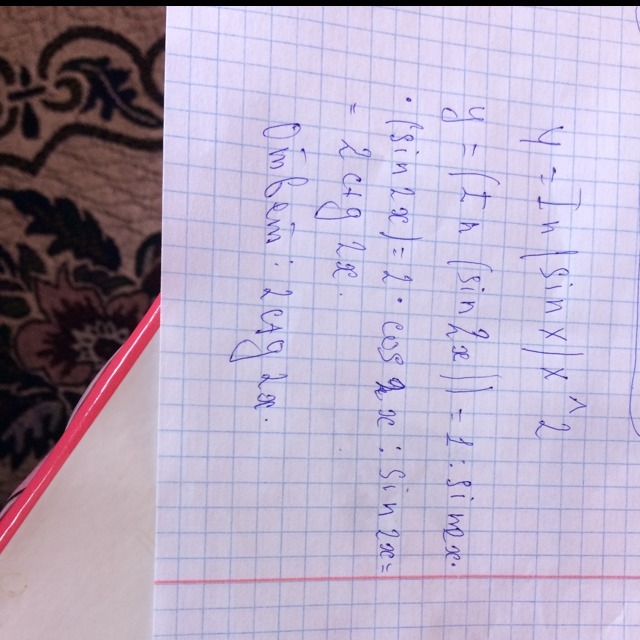 y = In (sin x) x ^ 2
y = (In (sin 2x)) = 1 : sin2x ·
· (sin 2x) = 2 · cos 2x : sin 2x =
= 2 ctg 2x.
Ответ: 2 ctg 2x.